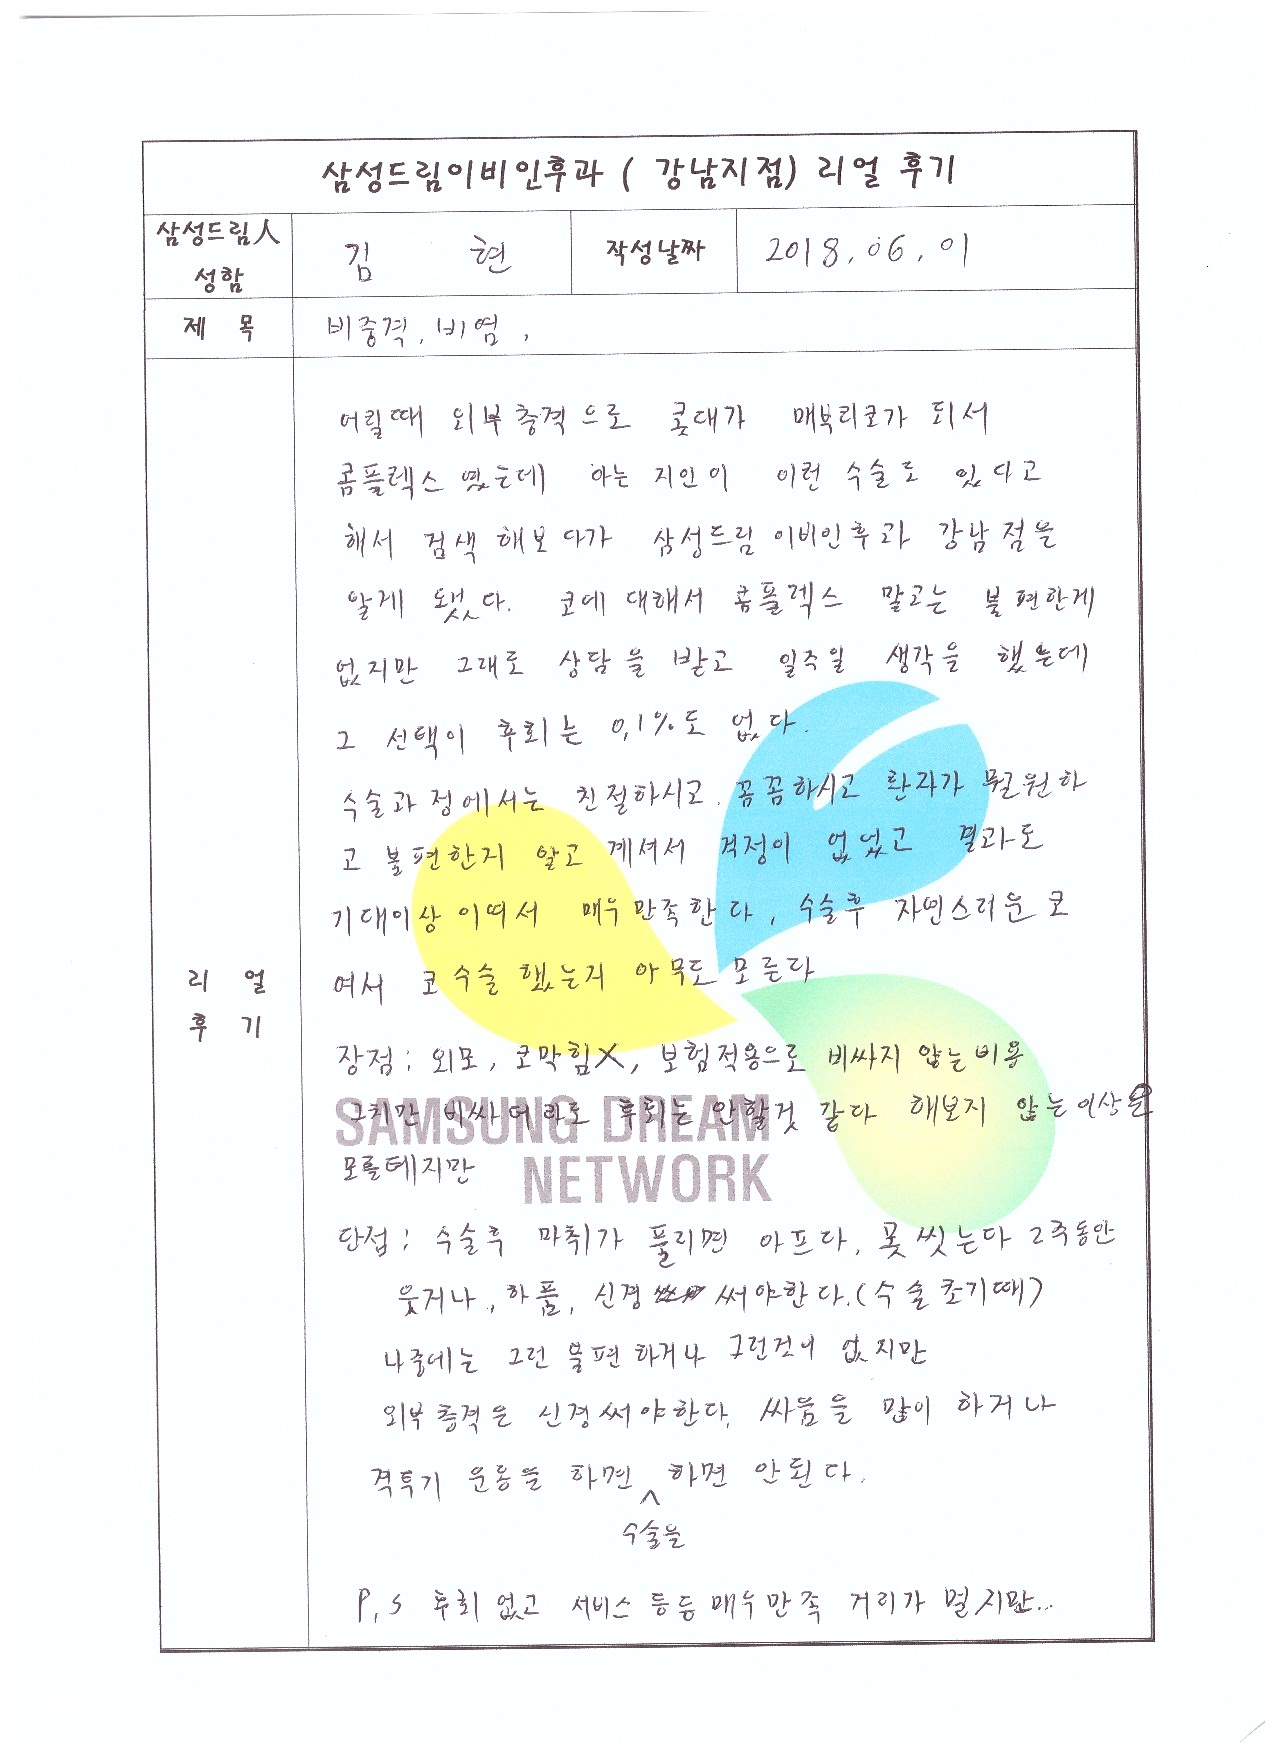 삼성드림이비인후과 ( 강남지점) 리얼 후기
삼성드림人
성함
김 현
작성날짜
2018.06.01
제 목
비중격, 비염,
리 얼
후 기
어릴때 외부충격으로 콧대가 매부리코가 되서
콤플렉스 였는데 아는 지인이 이런 수술도 있다고
해서 검색해보다가 삼성드림이비인후과 강남점을
알게 됐었다. 코에 대해서 콤플렉스 말고는 불편한게
없지만 그대로 상담을 받고 일주일 생각을 했는데
그 선택이 후회는 0.1%도 없다.
수술과정에서는 친절하시고, 꼼꼼하시고 환자가 뭘원하
고 불편한지 알고 계셔서 걱정이 없었고 결과도
기대이상 이여서 매우만족한다, 수술후 자연스러운 코
여서 코수술 했는지 아무도 모른다
장점 : 외모, 코막힘X, 보험적용으로 비싸지 않는비용
그치만 비싸더라도 후회는 안할것 같다 해보지 않는이상은
모를테지만
단점 : 수술후 마취가 풀리면 아프다, 못씻는다 2주동안
웃거나, 하품, 신경 써야한다.(수술초기때)
나중에는 그런 불편하거나 그런것이 없지만
외부충격은 신경써야한다, 싸움을 많이 하거나
격투기 운동을 하면 하면 안된다.
^
수술을
P.S 후회없고 서비스 등등 매우만족 거리가 멀지만...
SAMSUNG DREAM
NETWORK